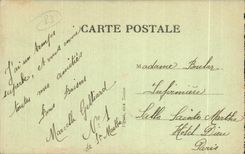 CARTE POSTALE
J'ai un temps
superbe, et vous envoie
toutes mes amitiés
Bons baisers
Marcelle
N° 1
Madame
Infirmière
Salle Sainte Marthe
Hôtel Dieu
Paris